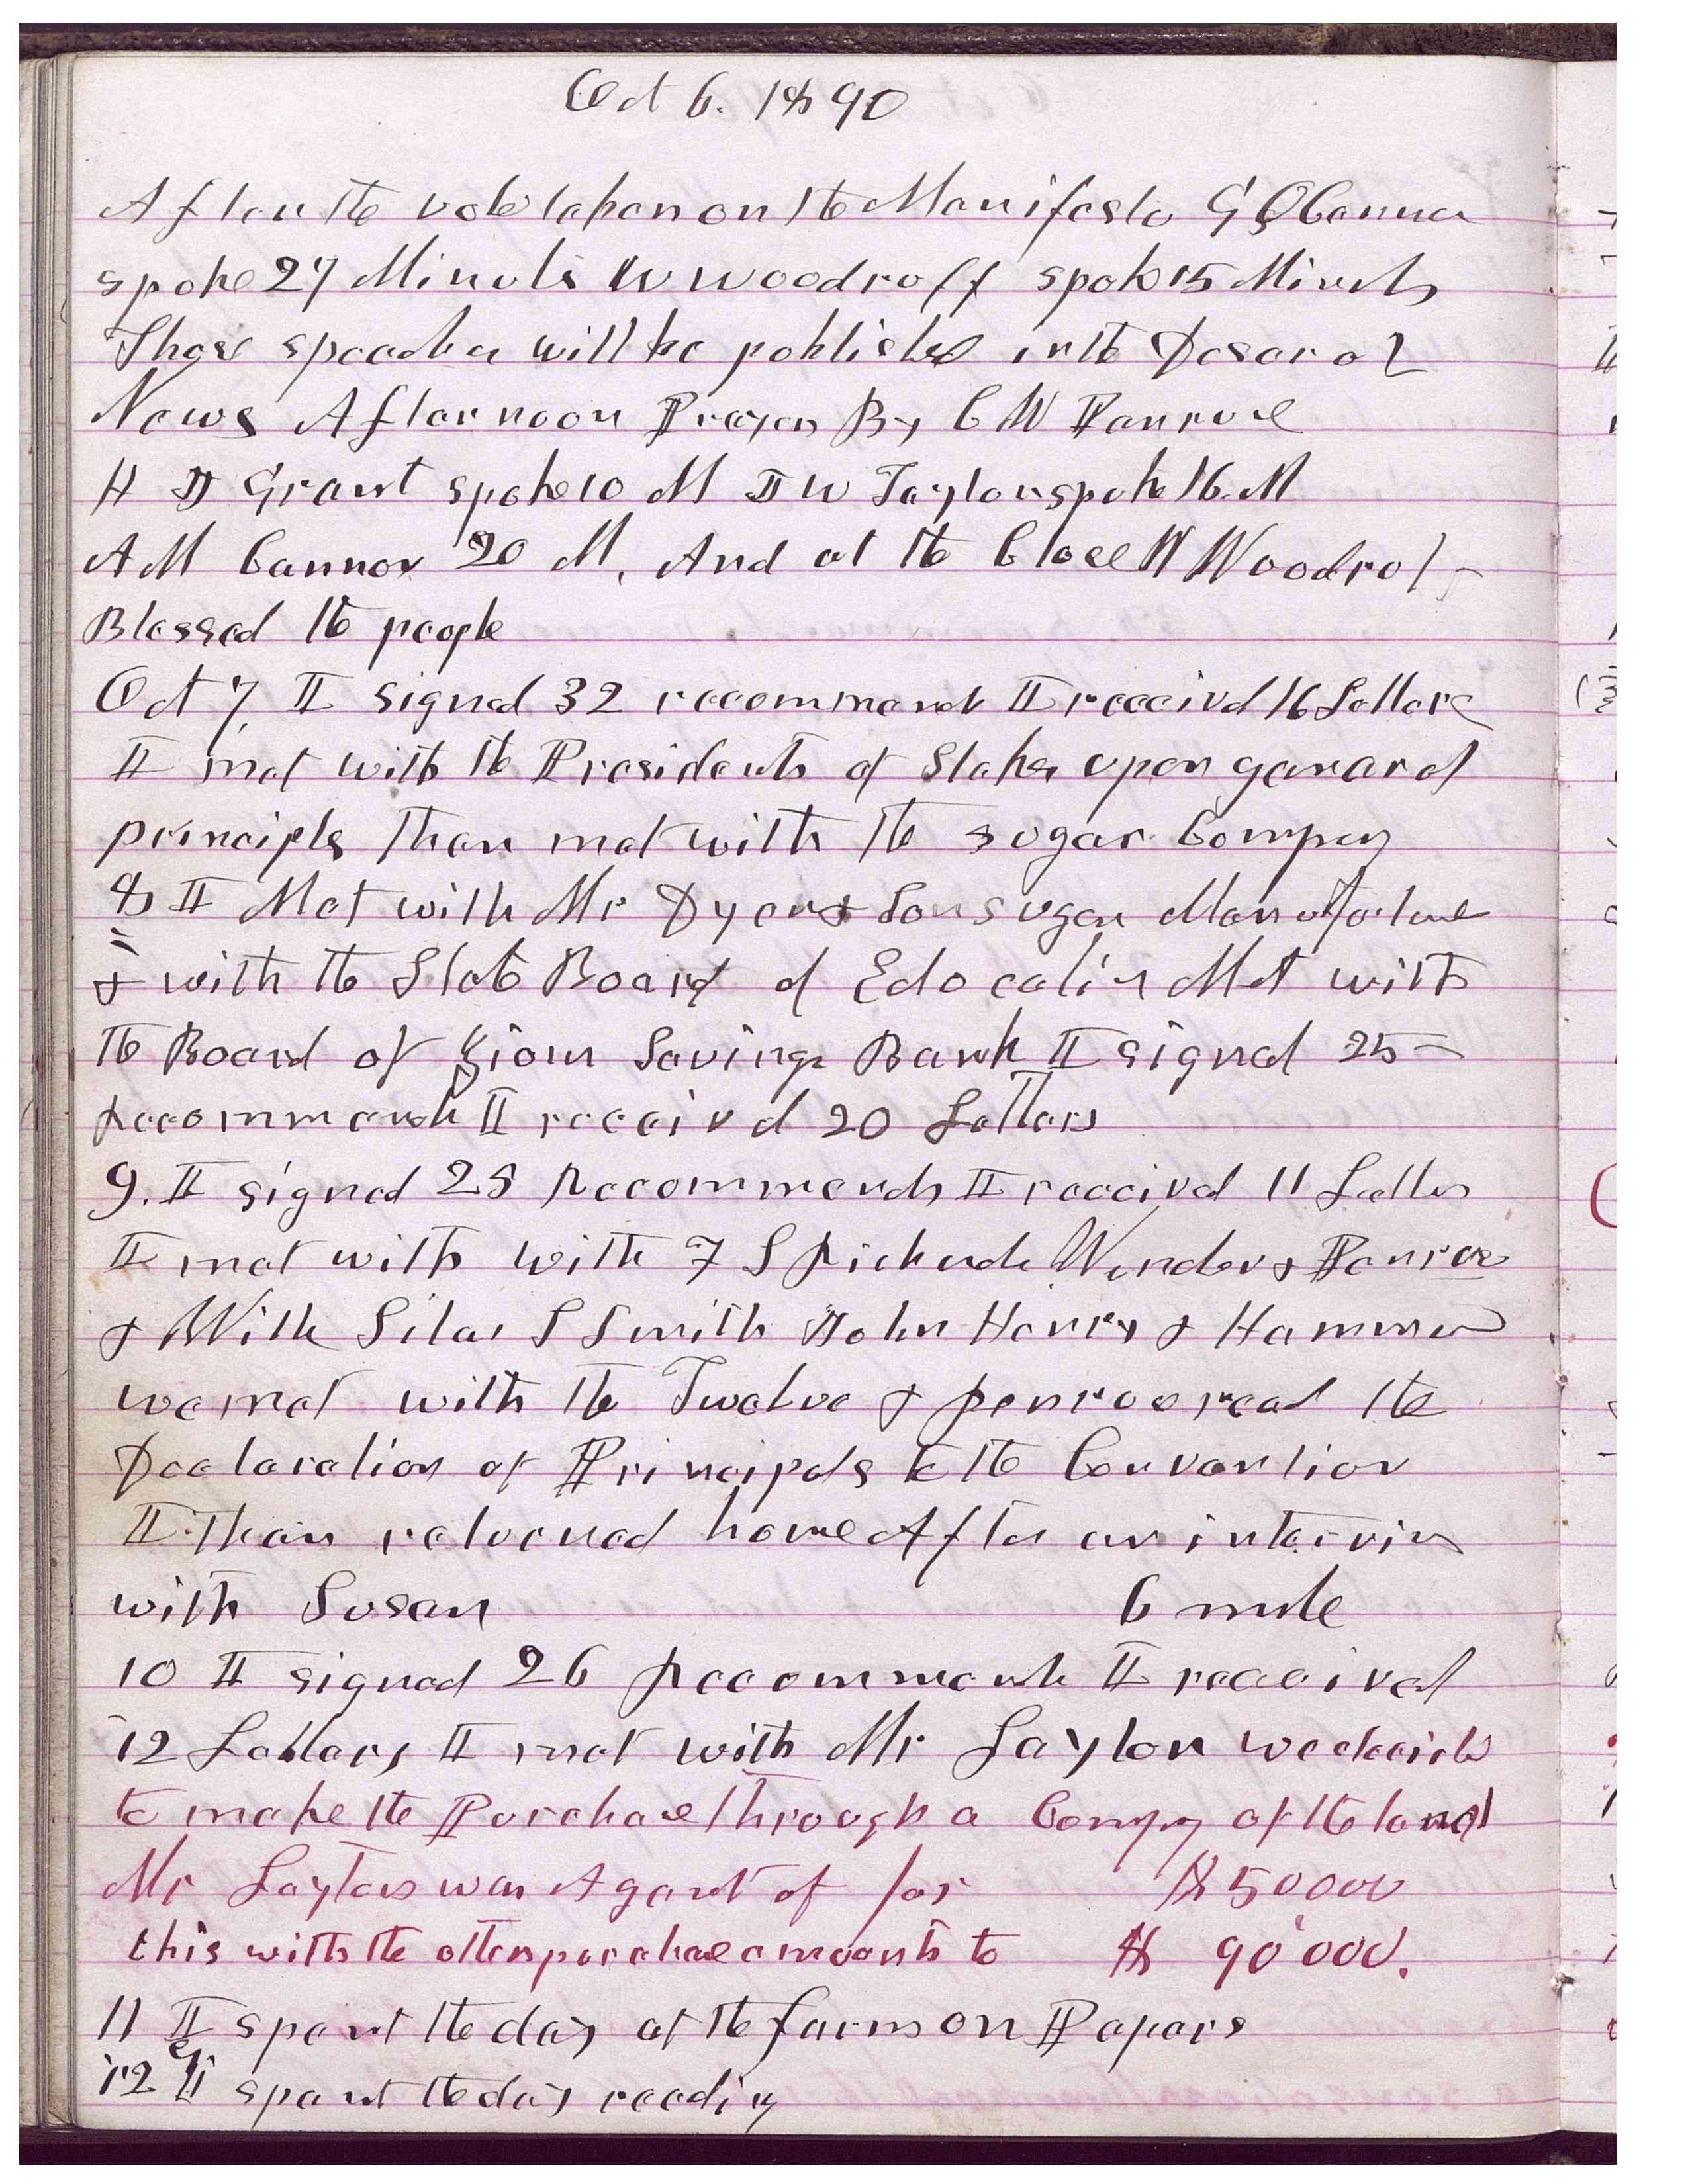 Oct 6. 1890
After the vote taken on the Manifesto G Q Cannon
spoke 27 Minuts W Woodruff spoke 15 Minuts
Those speeches will be published in the Deseret
News Afternoon Prayer By C W Penrose
H J Grant spoke 10 M J W Taylor spoke 16. M
A M Cannon 20 M. And at the Close W Woodruff
Blessed the people
Oct 7. I signed 32 recommends I received 16 Letters
I met with the Presidents of Stakes upon general
principls then met with the sugar Company
8 I Met with Mr Dyer & Son sugar Manufacture
& with the State Board of Education Met with
the Board of Zions Savings Bank I signed 25
Recommends I received 20 Letters
9. I signed 23 Recommends I received 11 Letters
I met with with F S Richards Winder & Penrose
& With Silas S Smith John Henry & Hammon
we met with the Twelve & penrose read the
Declaration of Principals to the Convention
I then returned home After an interview
with Susan 6 mile
10 I signed 26 Recommends I received
12 Letters, I met with Mr Layton we decided
to make the Purchase through a Compny of the land
Mr Layton was Agent of for $50000
this with the other purchase amounts to $ 90'000.
11 I spent the day at the farm on Papers
12 I spent the day reading